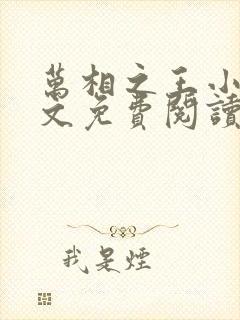 萬相之王小
文免費閱讀
我是煙